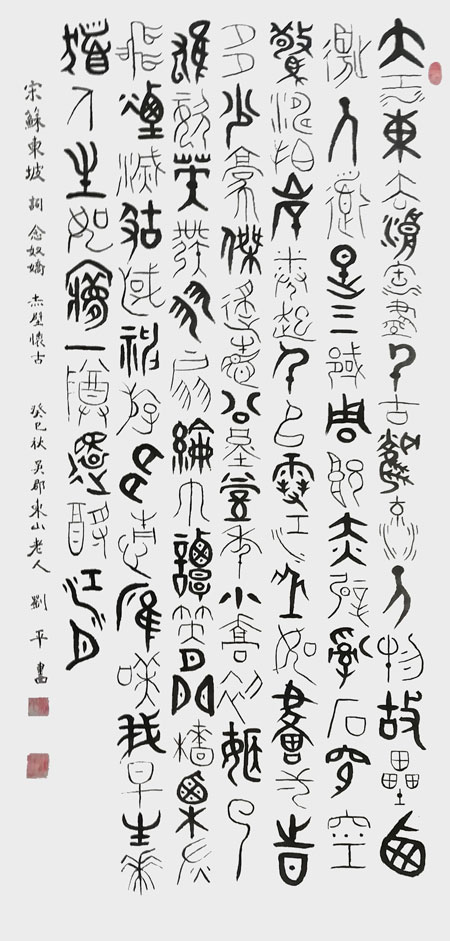 大江東去浪淘盡千古風流人物故壘西
邊人道是三國周郎赤壁亂石穿空
驚濤拍岸捲起千堆雪江山如畫一時
多少豪傑遙想公瑾當年小喬初嫁了
雄姿英發羽扇綸巾談笑間檣櫓灰
飛煙滅故國神遊多情應笑我早生華
髮人生如夢一樽還酹江月
宋蘇東坡詞念奴嬌 赤壁懷古 癸巳秋 吳郡山老人 劉平書